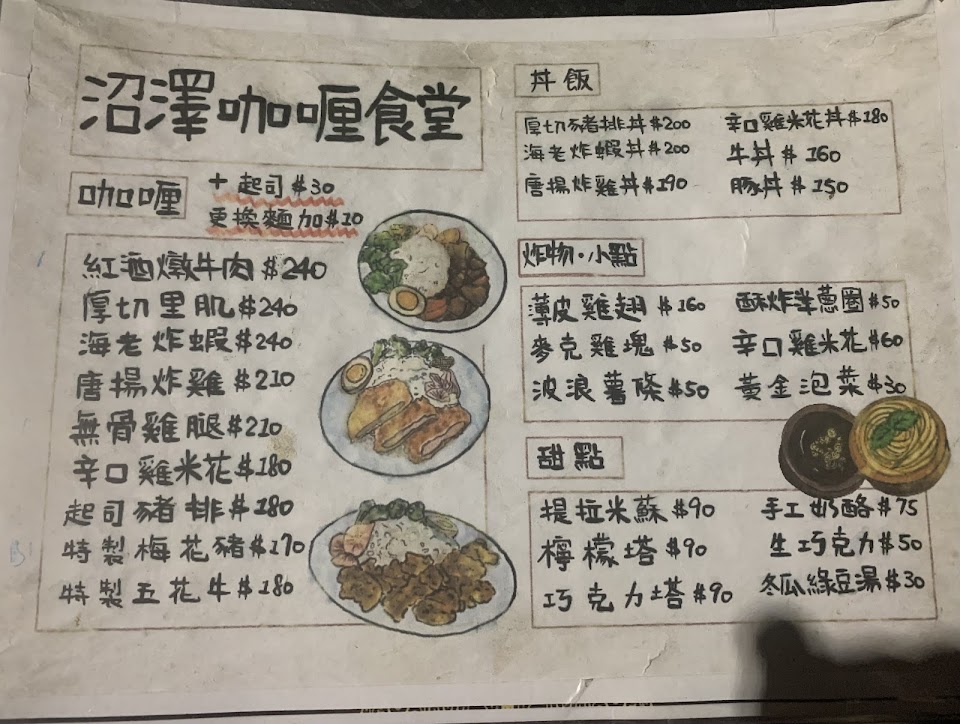 沼澤咖喱食堂
咖喱
+起司$30
更換麵加$10
紅酒燉牛肉$240
厚切里肌$240
海老炸蝦$240
唐揚炸雞$210
無骨雞腿$210
辛口雞米花$180
起司豬排$180
特製梅花豬$170
特製五花牛$180
丼飯
厚切豬排丼$200
辛口雞米花丼$180
海老炸蝦丼$200
牛丼$160
唐揚炸雞丼$190
豚丼$150
炸物·小點
薄皮雞翅$160
酥炸洋蔥圈$50
麥克雞塊$50
辛口雞米花$60
波浪薯條$50
黃金泡菜$30
甜點
提拉米蘇$90
手工奶酪$75
檸檬塔$90
生巧克力$50
巧克力塔$90
冬瓜綠豆湯$30